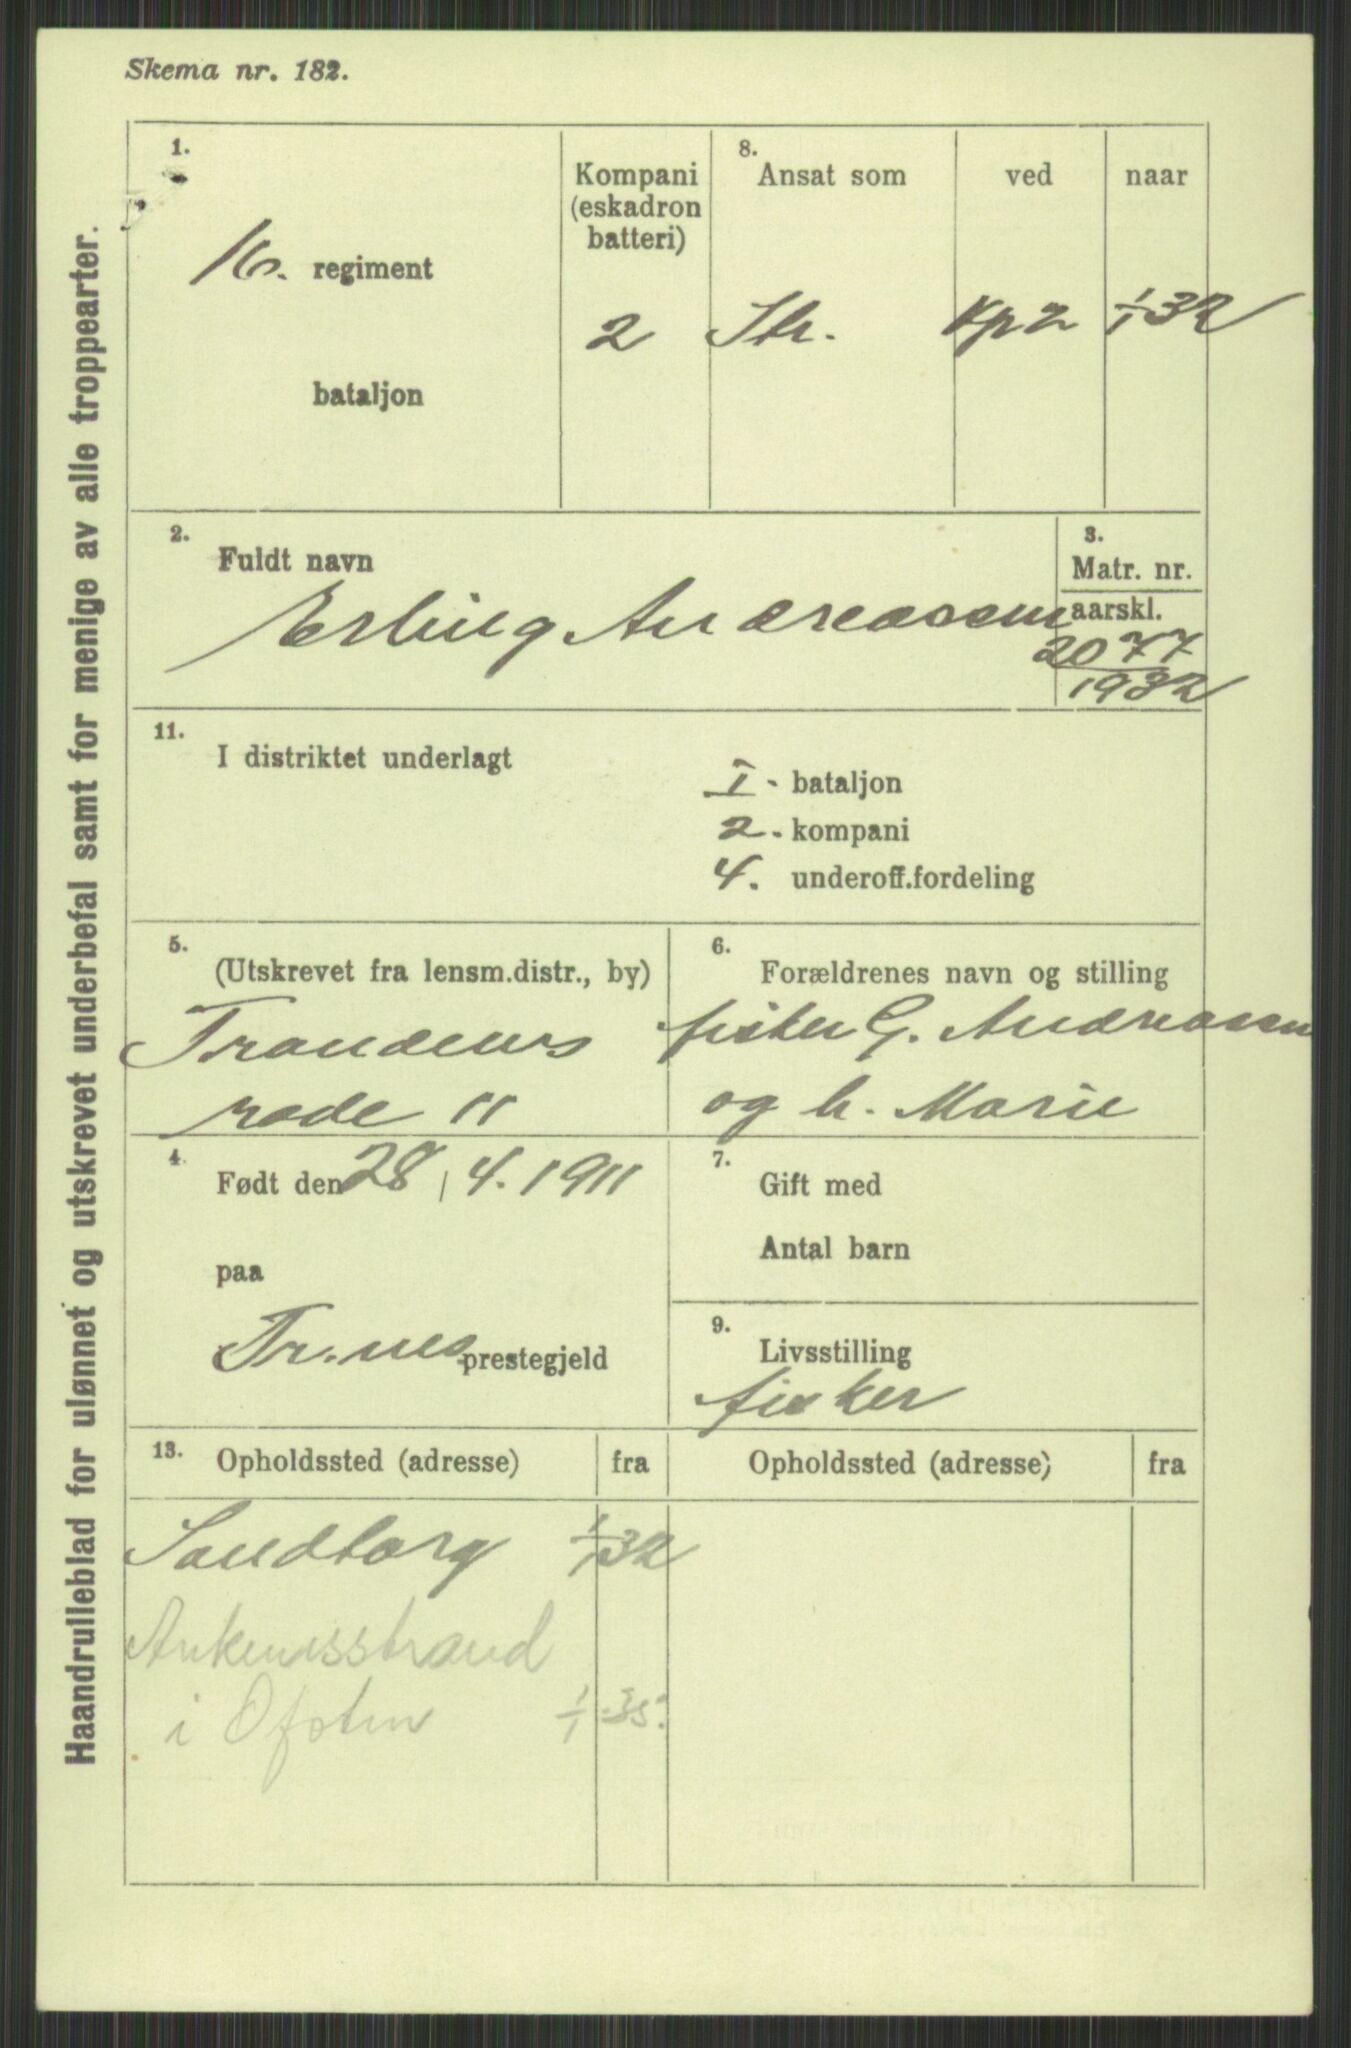 Skema nr. 182.
Haandrulleblad for ulønnet og utskrevet underbefal samt for menige av alle troppearter.
1.
16. regiment
bataljon
Kompani
(eskadron
batteri)
2
8.
Ansat som
Str.
ved
Kp 2
naar
1/1 32
2.
Fuldt navn
Erling Andreasen
3.
Matr. nr.
aarskl.
2077
1932
11.
I distriktet underlagt
I. bataljon
2. kompani
4. underoff.fordeling
5.
(Utskrevet fra lensm.distr., by)
Trondenes
rode 11
6.
Forældrenes navn og stilling
fisker G. Andreasen
og h. Marie
4.
Født den 28/4. 1911
paa
Tr.nes prestegjeld
7.
Gift med
Antal barn
9.
Livsstilling
fisker
13.
Opholdssted (adresse) fra
Opholdssted (adresse) fra
Sandtorg 1/1 32
Ankenesstrand
i Ofoten 1/1-35.